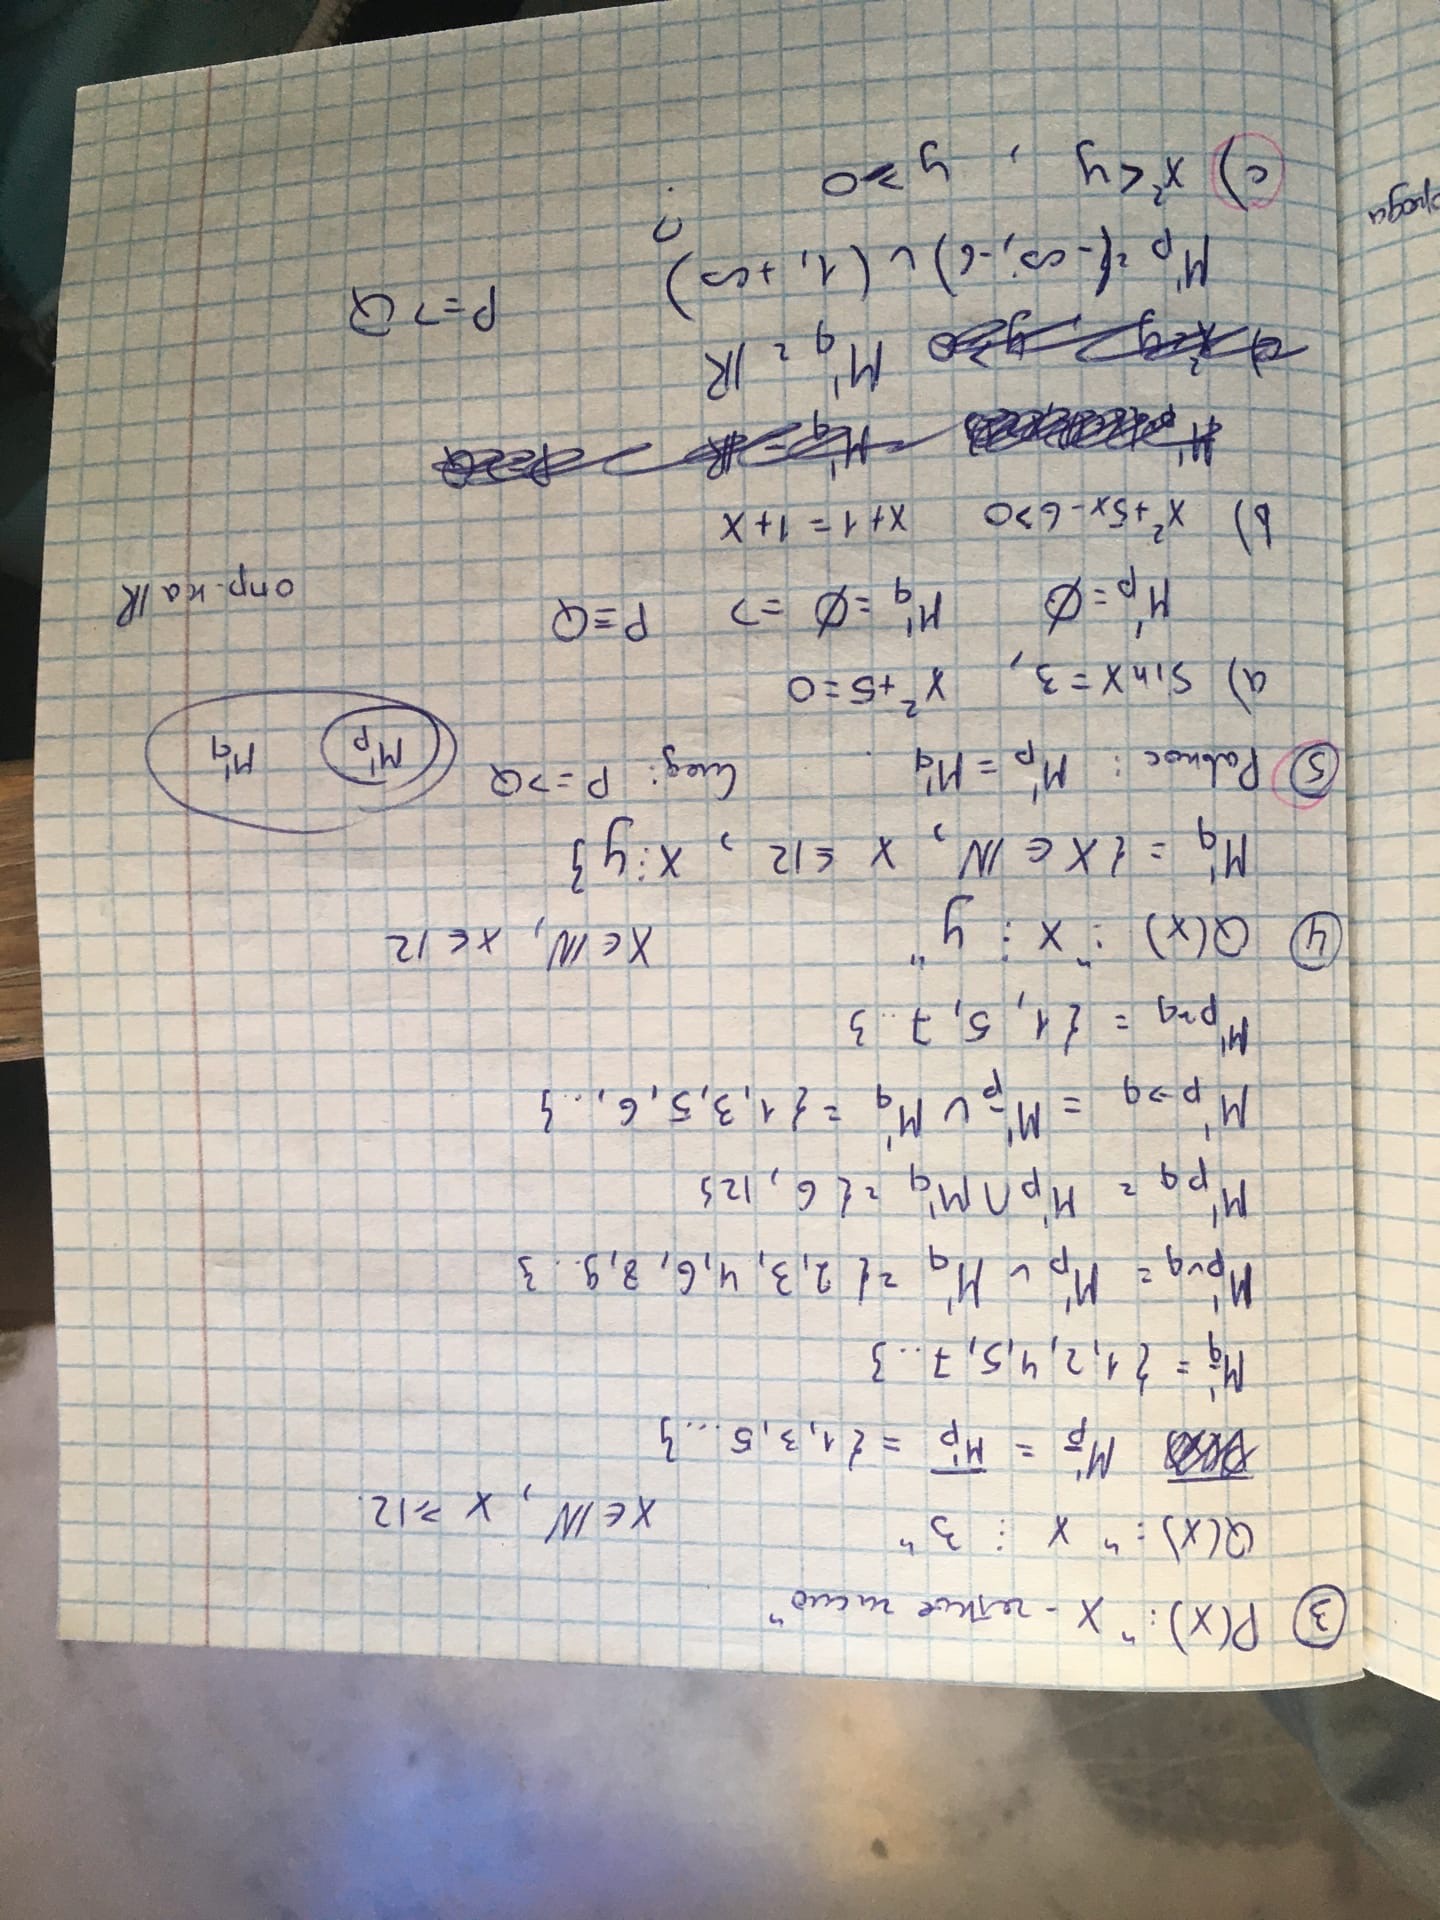 ③ P(x): "x - четное число"
Q(x): "x ⋮ 3" x∈ℕ, x ≥ 12.
M'p̅ = M̅'p = {1, 3, 5 ... }
M'q̅ = {1, 2, 4, 5, 7 ... }
M'p∨q = M'p ∪ M'q = {2, 3, 4, 6, 8, 9 .. }
M'pq = M'p ∩ M'q = {6, 12}
M'p→q = M'p̅ ∪ M'q = {1, 3, 5, 6, ... }
M'p~q = {1, 5, 7 ... }
④ Q(x) : "x ⋮ y" x∈ℕ, x ≤ 12
M'q = {x ∈ ℕ, x ≤ 12, x ⋮ y}
⑤ Равнос: M'p = M'q. След: P => Q M'p M'q
a) sin x = 3, x² + 5 = 0
M'p = ∅ M'q = ∅ => P ≡ Q опр. на ℝ
b) x² + 5x - 6 > 0 x + 1 = 1 + x
M'q = ℝ P => Q
c) x² < y, y ≥ 0 M'q = ℝ
M'p = (-∞; -6) ∪ (1, +∞) P => Q
c) x² < y, y ≥ 0 ?